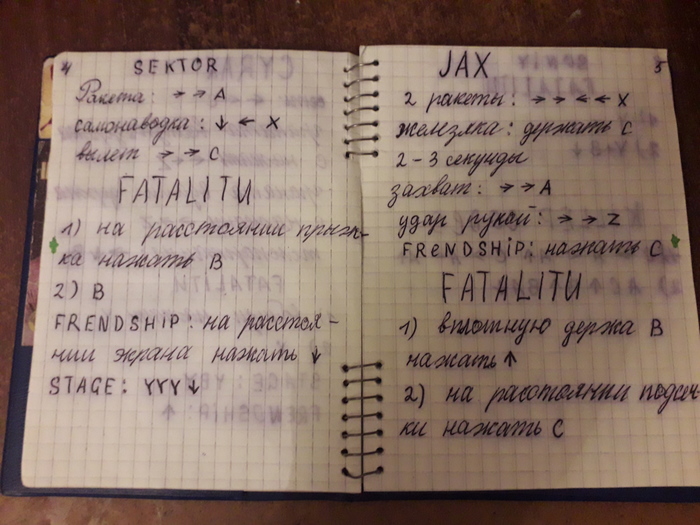 4
SEKTOR
Ракета: → → A
самонаводка: ↓ ← X
вылет → → C
FATALITU
1) на расстоянии прыж-
ка нажать B
2) B
FRENDSHIP: на расстоя-
нии экрана нажать ↓
STAGE: YYY ↓
5
JAX
2 ракеты: → → ← ← X
железяка: держать C
2-3 секунды
захват: → → A
удар рукой: → → Z
FRENDSHIP: нажать C
FATALITU
1) вплотную держа B
нажать ↑
2) на расстоянии подсеч-
ки нажать C